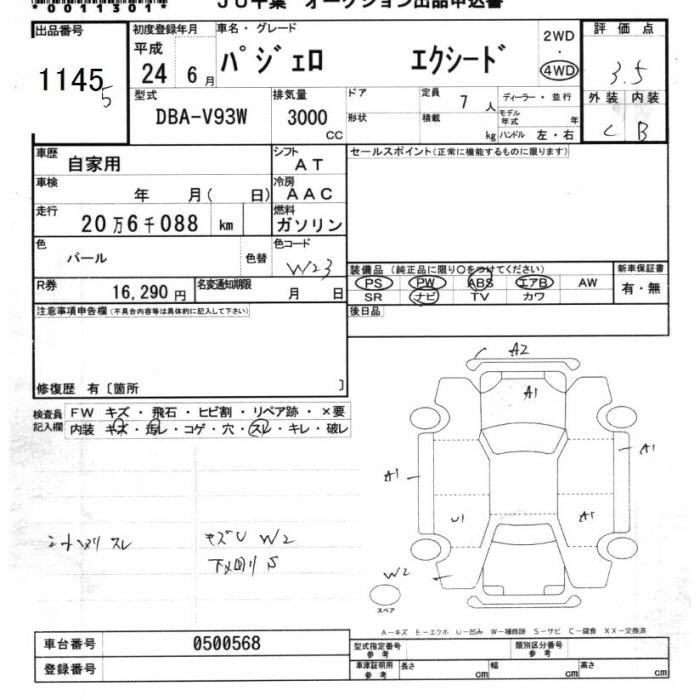 *00113011*
JU千葉 オークション出品申込書
出品番号
11455
初度登録年月
平成
24 6月
車名・グレード
パジェロ エクシード
2WD
・
4WD
評価点
3.5
外装 内装
C B
型式
DBA-V93W
排気量
3000
CC
ドア
形状
定員
7人
積載
kg
ディーラー・並行
モデル年式 年
ハンドル 左・右
車歴
自家用
シフト
AT
セールスポイント(正常に機能するものに限ります)
車検
年 月( 日)
冷房
AAC
走行
20万6千088 km
燃料
ガソリン
色
パール
色替
色コード
W23
装備品(純正品に限り○をつけてください)
新車保証書
PS PW ABS エアB AW
SR ナビ TV カワ
有・無
R券
16,290円
名変通知期限
月 日
後日品
注意事項申告欄(不具合内容等は具体的に記入して下さい)
修復歴 有〔箇所 〕
検査員記入欄
FW キズ・飛石・ヒビ割・リペア跡・×要
内装 キズ・汚レ・コゲ・穴・スレ・キレ・破レ
A2
A1
A1
A1
U1
A1
W2
シートハリ スレ
キズU W2
下回りS
スペア
A－キズ E－エクボ U－凹み W－補修跡 S－サビ C－腐食 XX－交換済
車台番号
0500568
登録番号
型式指定番号
参考
類別区分番号
参考
車庫証明用
参考
長さ cm
幅 cm
高さ cm